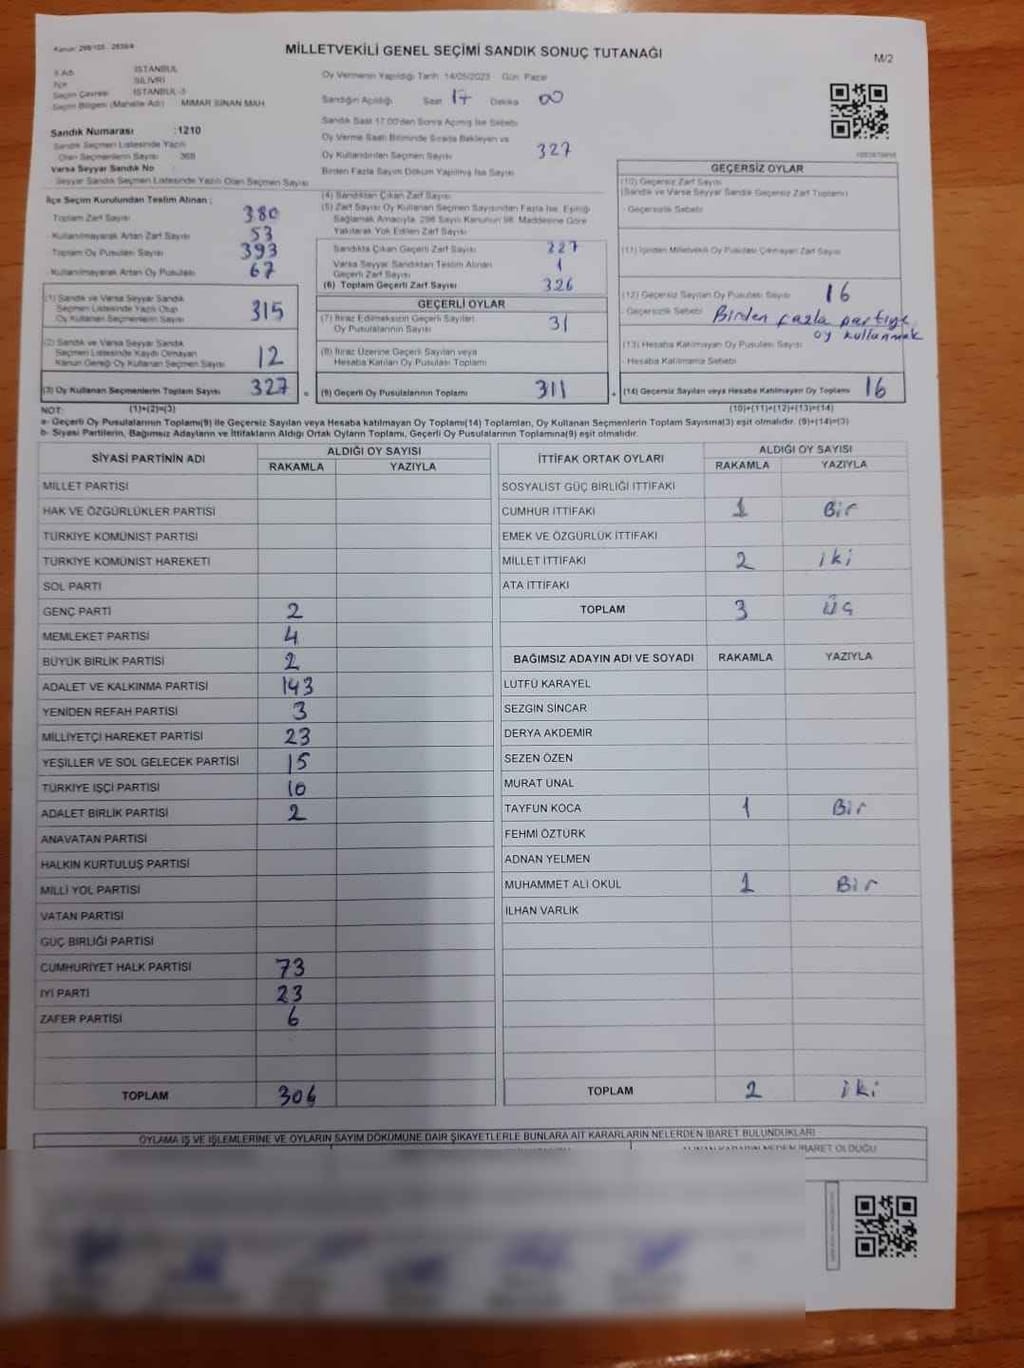 Kanun: 298/105 - 2839/4
MİLLETVEKİLİ GENEL SEÇİMİ SANDIK SONUÇ TUTANAĞI
M/2
İl Adı İSTANBUL
İlçe SİLİVRİ
Seçim Çevresi İSTANBUL-3
Seçim Bölgesi (Mahalle Adı) MİMAR SİNAN MAH
Sandık Numarası :1210
Sandık Seçmen Listesinde Yazılı
Olan Seçmenlerin Sayısı 368
Varsa Seyyar Sandık No
Seyyar Sandık Seçmen Listesinde Yazılı Olan Seçmen Sayısı
Oy Vermenin Yapıldığı Tarih 14/05/2023 Gün Pazar
Sandığın Açıldığı Saat 17 Dakika 00
Sandık Saat 17.00'den Sonra Açılmış İse Sebebi
Oy Verme Saati Bitiminde Sırada Bekleyen ve
Oy Kullandırılan Seçmen Sayısı 327
Birden Fazla Sayım Döküm Yapılmış İse Sayısı
İlçe Seçim Kurulundan Teslim Alınan :
Toplam Zarf Sayısı 380
Kullanılmayarak Artan Zarf Sayısı 53
Toplam Oy Pusulası Sayısı 393
Kullanılmayarak Artan Oy Pusulası 67
(1) Sandık ve Varsa Seyyar Sandık
Seçmen Listesinde Yazılı Olup
Oy Kullanan Seçmenlerin Sayısı 315
(2) Sandık ve Varsa Seyyar Sandık
Seçmen Listesinde Kaydı Olmayan
Kanun Gereği Oy Kullanan Seçmen Sayısı 12
(3) Oy Kullanan Seçmenlerin Toplam Sayısı 327
(4) Sandıktan Çıkan Zarf Sayısı
(5) Zarf Sayısı Oy Kullanan Seçmen Sayısından Fazla İse, Eşitliği
Sağlamak Amacıyla, 298 Sayılı Kanunun 98. Maddesine Göre
Yakılarak Yok Edilen Zarf Sayısı
Sandıkta Çıkan Geçerli Zarf Sayısı 227
Varsa Seyyar Sandıktan Teslim Alınan
Geçerli Zarf Sayısı 1
(6) Toplam Geçerli Zarf Sayısı 326
GEÇERLİ OYLAR
(7) İtiraz Edilmeksizin Geçerli Sayılan
Oy Pusulalarının Sayısı 31
(8) İtiraz Üzerine Geçerli Sayılan veya
Hesaba Katılan Oy Pusulası Toplamı
= (9) Geçerli Oy Pusulalarının Toplamı 311
GEÇERSİZ OYLAR
(10) Geçersiz Zarf Sayısı
(Sandık ve Varsa Seyyar Sandık Geçersiz Zarf Toplamı)
- Geçersizlik Sebebi
(11) İçinden Milletvekili Oy Pusulası Çıkmayan Zarf Sayısı
(12) Geçersiz Sayılan Oy Pusulası Sayısı 16
- Geçersizlik Sebebi Birden fazla partiye
oy kullanmak
(13) Hesaba Katılmayan Oy Pusulası Sayısı
- Hesaba Katılmama Sebebi
+ (14) Geçersiz Sayılan veya Hesaba Katılmayan Oy Toplamı 16
NOT: (1)+(2)=(3) (10)+(11)+(12)+(13)=(14)
a- Geçerli Oy Pusulalarının Toplamı(9) ile Geçersiz Sayılan veya Hesaba katılmayan Oy Toplamı(14) Toplamları, Oy Kullanan Seçmenlerin Toplam Sayısına(3) eşit olmalıdır. (9)+(14)=(3)
b- Siyasi Partilerin, Bağımsız Adayların ve İttifakların Aldığı Ortak Oyların Toplamı, Geçerli Oy Pusulalarının Toplamına(9) eşit olmalıdır.
SİYASİ PARTİNİN ADI ALDIĞI OY SAYISI
RAKAMLA YAZIYLA
MİLLET PARTİSİ
HAK VE ÖZGÜRLÜKLER PARTİSİ
TÜRKİYE KOMÜNİST PARTİSİ
TÜRKİYE KOMÜNİST HAREKETİ
SOL PARTİ
GENÇ PARTİ 2
MEMLEKET PARTİSİ 4
BÜYÜK BİRLİK PARTİSİ 2
ADALET VE KALKINMA PARTİSİ 143
YENİDEN REFAH PARTİSİ 3
MİLLİYETÇİ HAREKET PARTİSİ 23
YEŞİLLER VE SOL GELECEK PARTİSİ 15
TÜRKİYE İŞÇİ PARTİSİ 10
ADALET BİRLİK PARTİSİ 2
ANAVATAN PARTİSİ
HALKIN KURTULUŞ PARTİSİ
MİLLİ YOL PARTİSİ
VATAN PARTİSİ
GÜÇ BİRLİĞİ PARTİSİ
CUMHURİYET HALK PARTİSİ 73
İYİ PARTİ 23
ZAFER PARTİSİ 6
TOPLAM 306
İTTİFAK ORTAK OYLARI ALDIĞI OY SAYISI
RAKAMLA YAZIYLA
SOSYALİST GÜÇ BİRLİĞİ İTTİFAKI
CUMHUR İTTİFAKI 1 Bir
EMEK VE ÖZGÜRLÜK İTTİFAKI
MİLLET İTTİFAKI 2 iki
ATA İTTİFAKI
TOPLAM 3 Üç
BAĞIMSIZ ADAYIN ADI VE SOYADI RAKAMLA YAZIYLA
LÜTFÜ KARAYEL
SEZGİN SİNCAR
DERYA AKDEMİR
SEZEN ÖZEN
MURAT ÜNAL
TAYFUN KOCA 1 Bir
FEHMİ ÖZTÜRK
ADNAN YELMEN
MUHAMMET ALİ OKUL 1 Bir
İLHAN VARLIK
TOPLAM 2 iki
OYLAMA İŞ VE İŞLEMLERİNE VE OYLARIN SAYIM DÖKÜMÜNE DAİR ŞİKAYETLERLE BUNLARA AİT KARARLARIN NELERDEN İBARET BULUNDUKLARI
ALINAN KARARIN NEDEN İBARET OLDUĞU